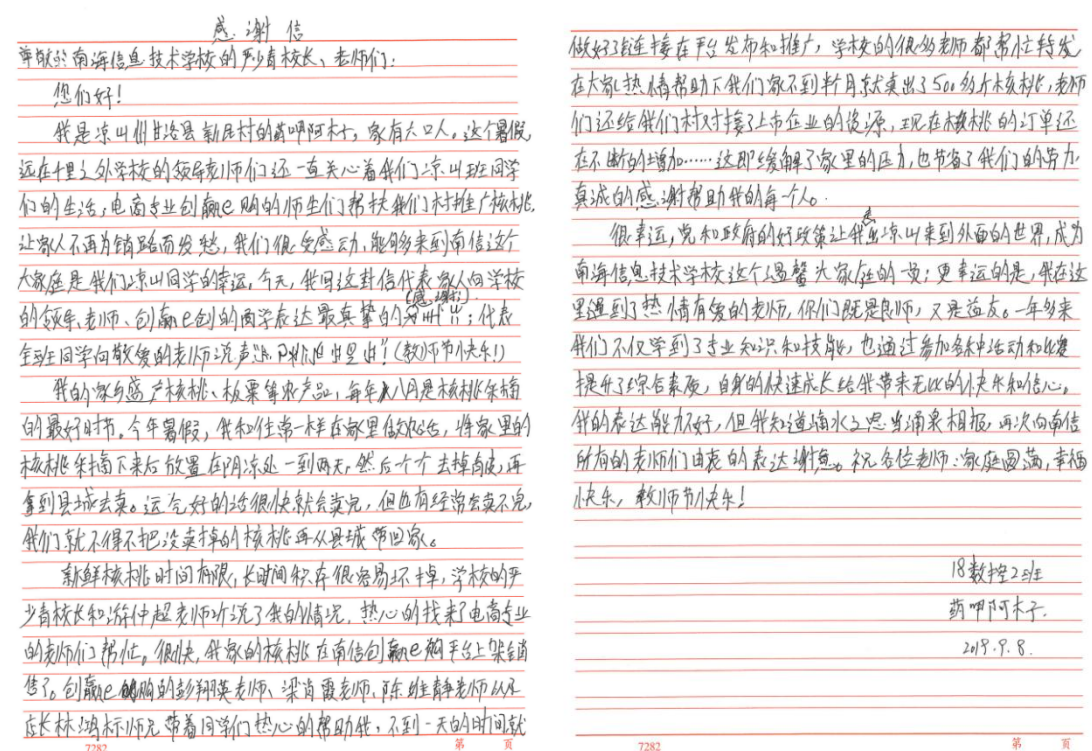 感谢信
尊敬的南海信息技术学校的严少青校长、老师们:
您们好!
我是凉山州甘洛县新居村的药呷阿木子,家有六口人。这个暑假,
远在千里之外学校的领导老师们还一直关心着我们凉山班同学
们的生活,电商专业创赢e购的师生们帮扶我们村推广核桃,
让家人不再为销路而发愁,我们很受感动,能够来到南信这个
大家庭是我们凉山同学的幸运。今天,我写这封信代表家人向学校
的领导、老师、创赢e创的同学表达最真挚的(感谢);代表
全班同学向敬爱的老师说声(教师节快乐!)
我的家乡盛产核桃、板栗等农产品,每年八月是核桃采摘
的最好时节。今年暑假,我和往常一样在家里做农活,将家里的
核桃采摘下来后放置在阴凉处一到两天,然后个个去掉青皮,再
拿到县城去卖。运气好的话很快就会卖完,但也有经常会卖不完,
我们就不得不把没卖掉的核桃再从县城带回家。
新鲜核桃时间有限,长时间积存很容易坏掉,学校的严
少青校长和游仲超老师听说了我的情况,热心的找来了电商专业
的老师们帮忙。很快,我家的核桃在南信创赢e购平台上架销
售了。创赢e购的彭翔英老师、梁肖霞老师、陈维静老师以及
店长林鸿标师兄带着同学们热心的帮助我,不到一天的时间就
做好了链接在平台发布和推广,学校的很多老师都帮忙转发
在大家热情帮助下我们家不到半个月就卖出了500多斤核桃,老师
们还给我们村对接了上市企业的资源,现在核桃的订单还
在不断的增加……这即缓解了家里的压力,也节省了我们的劳力
真诚的感谢帮助我的每个人。
很幸运,党和政府的好政策让我走出凉山来到外面的世界,成为
南海信息技术学校这个温馨大家庭的一员;更幸运的是,我在这
里遇到了热情有爱的老师,你们既是良师,又是益友。一年多来
我们不仅学到了专业知识和技能,也通过参加各种活动和比赛
提升了综合素质,自身的快速成长给我带来无比的快乐和信心。
我的表达能力不好,但我知道滴水之恩当涌泉相报,再次向南信
所有的老师们由衷的表达谢意。祝各位老师:家庭圆满,幸福
快乐,教师节快乐!
18数控2班
药呷阿木子.
2019.9.8.
7282 第 页
7282 第 页